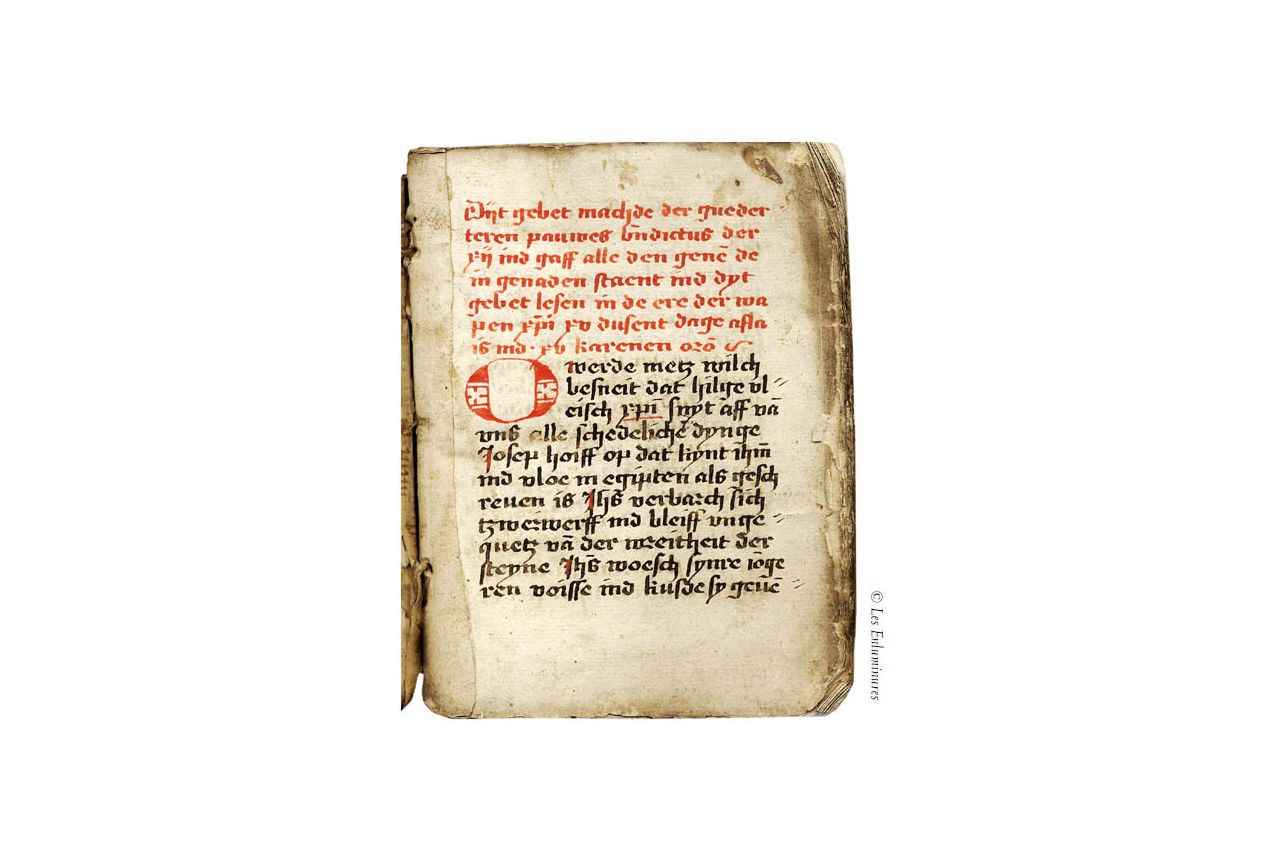 Dijt gebet machde der gueder⸗
teren pauwes bn̄dictus der
xij ind gaff alle den genē de
in genaden staent ind dyt
gebet lesen in de ere der wa
pen xp̄i xv dusent dage afla
is ind · xv karenen orō
O werde metz wilch
besneit dat hilge vl⸗
eisch xp̄i snyt aff vā
vns alle schedelichē dynge
Josep hoiff op dat kynt ih̄m
ind vloe in egipten als gesch
reuen is Jhs̄ verbarch sich
tzwerwerff ind bleiff vnge⸗
quetz vā der wreitheit der
steyne Jhs̄ woesch synre iōge
ren voisse ind kusde sy geuē⸗
© Les Enluminures